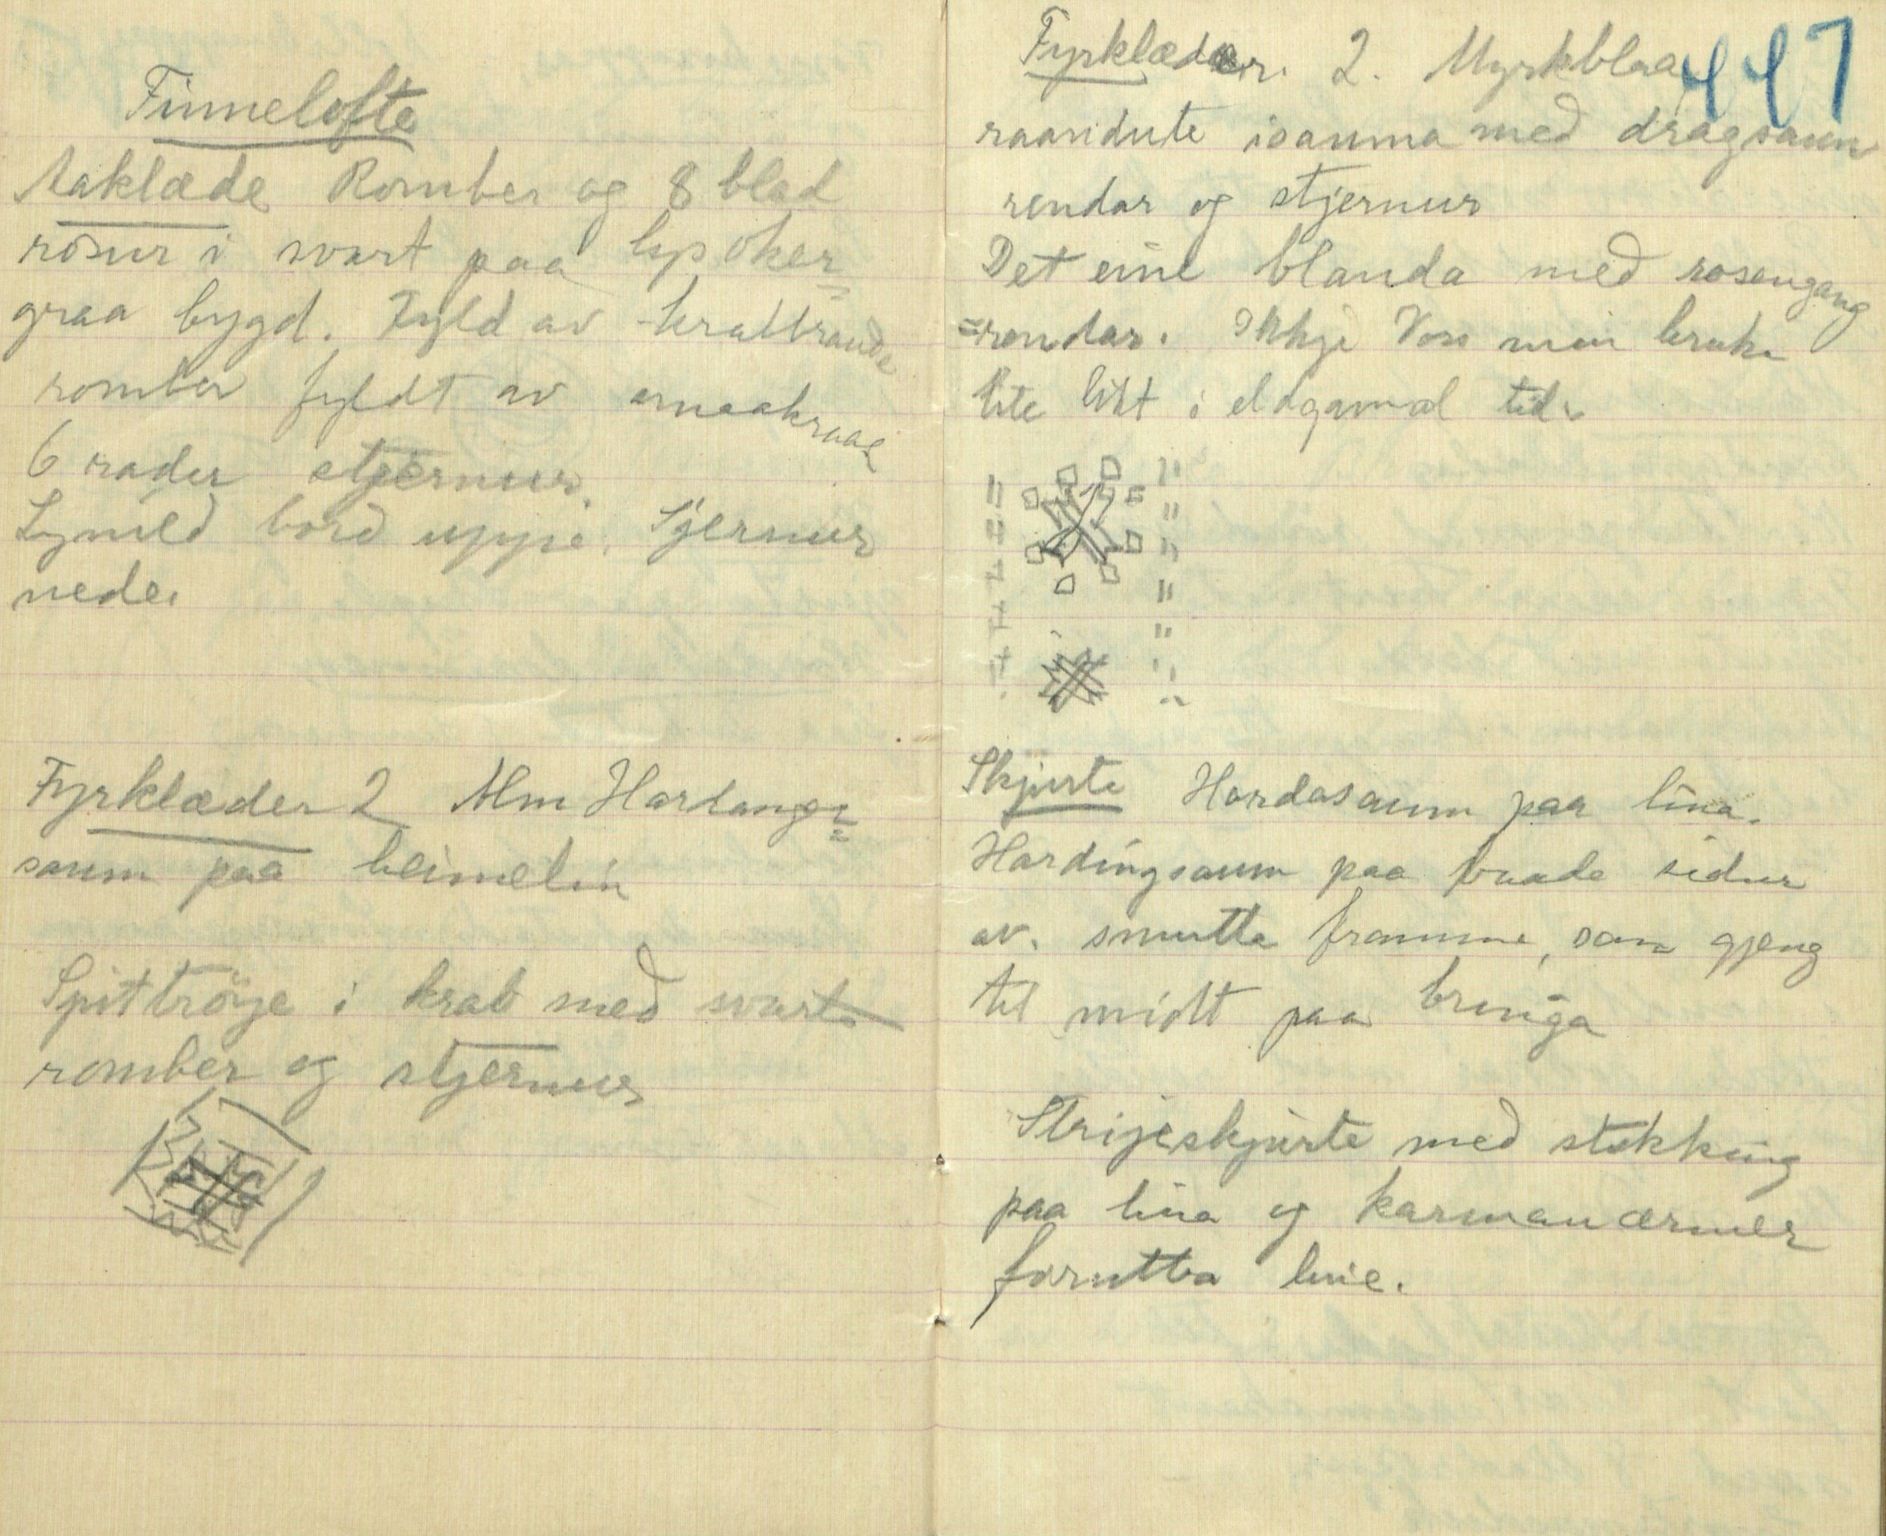 Finnelofte
Aaklæde Romber og 8 blad
rosur i svart paa lys oker
graa bygd. Fyld av
romber fyldt av smaakraae
6 rader stjernur.
Lynild bord uppe. Sjernur
nede.
Fyrklæder 2 Alm Hardang=
saum paa heimelin
Spittröye i krab med svart
romber og stjernur
447
Fyrklæder. 2. Myrkblaa
raanidute isauma med dragsaum
rendar og stjernur
Det eine blanda med rosengang
=rendar. Ikkje Voss men bruka
lite litt i eldgamal tid.
Skjurte Hordasaum paa lina.
Hardingsaum paa baade sidur
av. smutta framme, som gjeng
til midt paa bringa
Strijeskjurte med stikking
paa lina og karmanærmer
forutta linie.